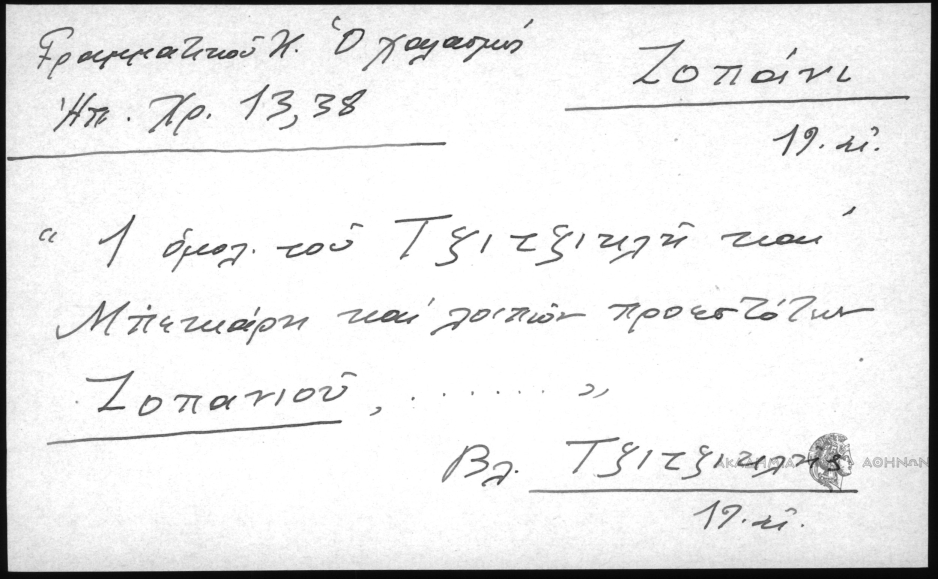 Γραμματικοῦ Χ. Ὁ χαλασμός
Ἠπ. Χρ. 13,38
Ζοπάνι
19. αἰ.
" 1 ὁμολ. τοῦ Τζιτζικλῆ καὶ
Μπεκιάρη καὶ λοιπῶν προεστώτων
Ζοπανιοῦ, . . . . . . "
Βλ. Τζιτζικλῆς
19. αἰ.
ΑΚΑΔΗΜΙΑ ΑΘΗΝΩΝ